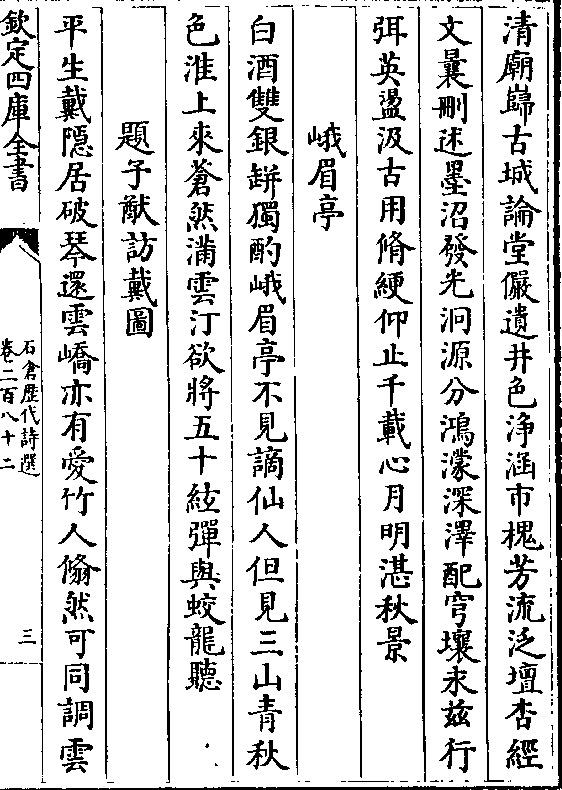 清廟巋古城論堂儼遺井色浄涵市槐芳流泛壇杏經
文曩刪述墨沼發光泂源分鴻濛深澤配穹壤永兹行
弭英盪汲古用脩綆仰止千載心月明湛秋景
峨眉亭
白酒雙銀缾獨酌峨眉亭不見謫仙人但見三山青秋
色淮上來蒼然滿雲汀欲將五十絃彈與蛟龍聽
題子猷訪戴圖
平生戴隠居破琴還雲嶠亦有愛竹人翛然可同調雲
欽定四庫全書
石倉歴代詩選
卷二百八十二
三